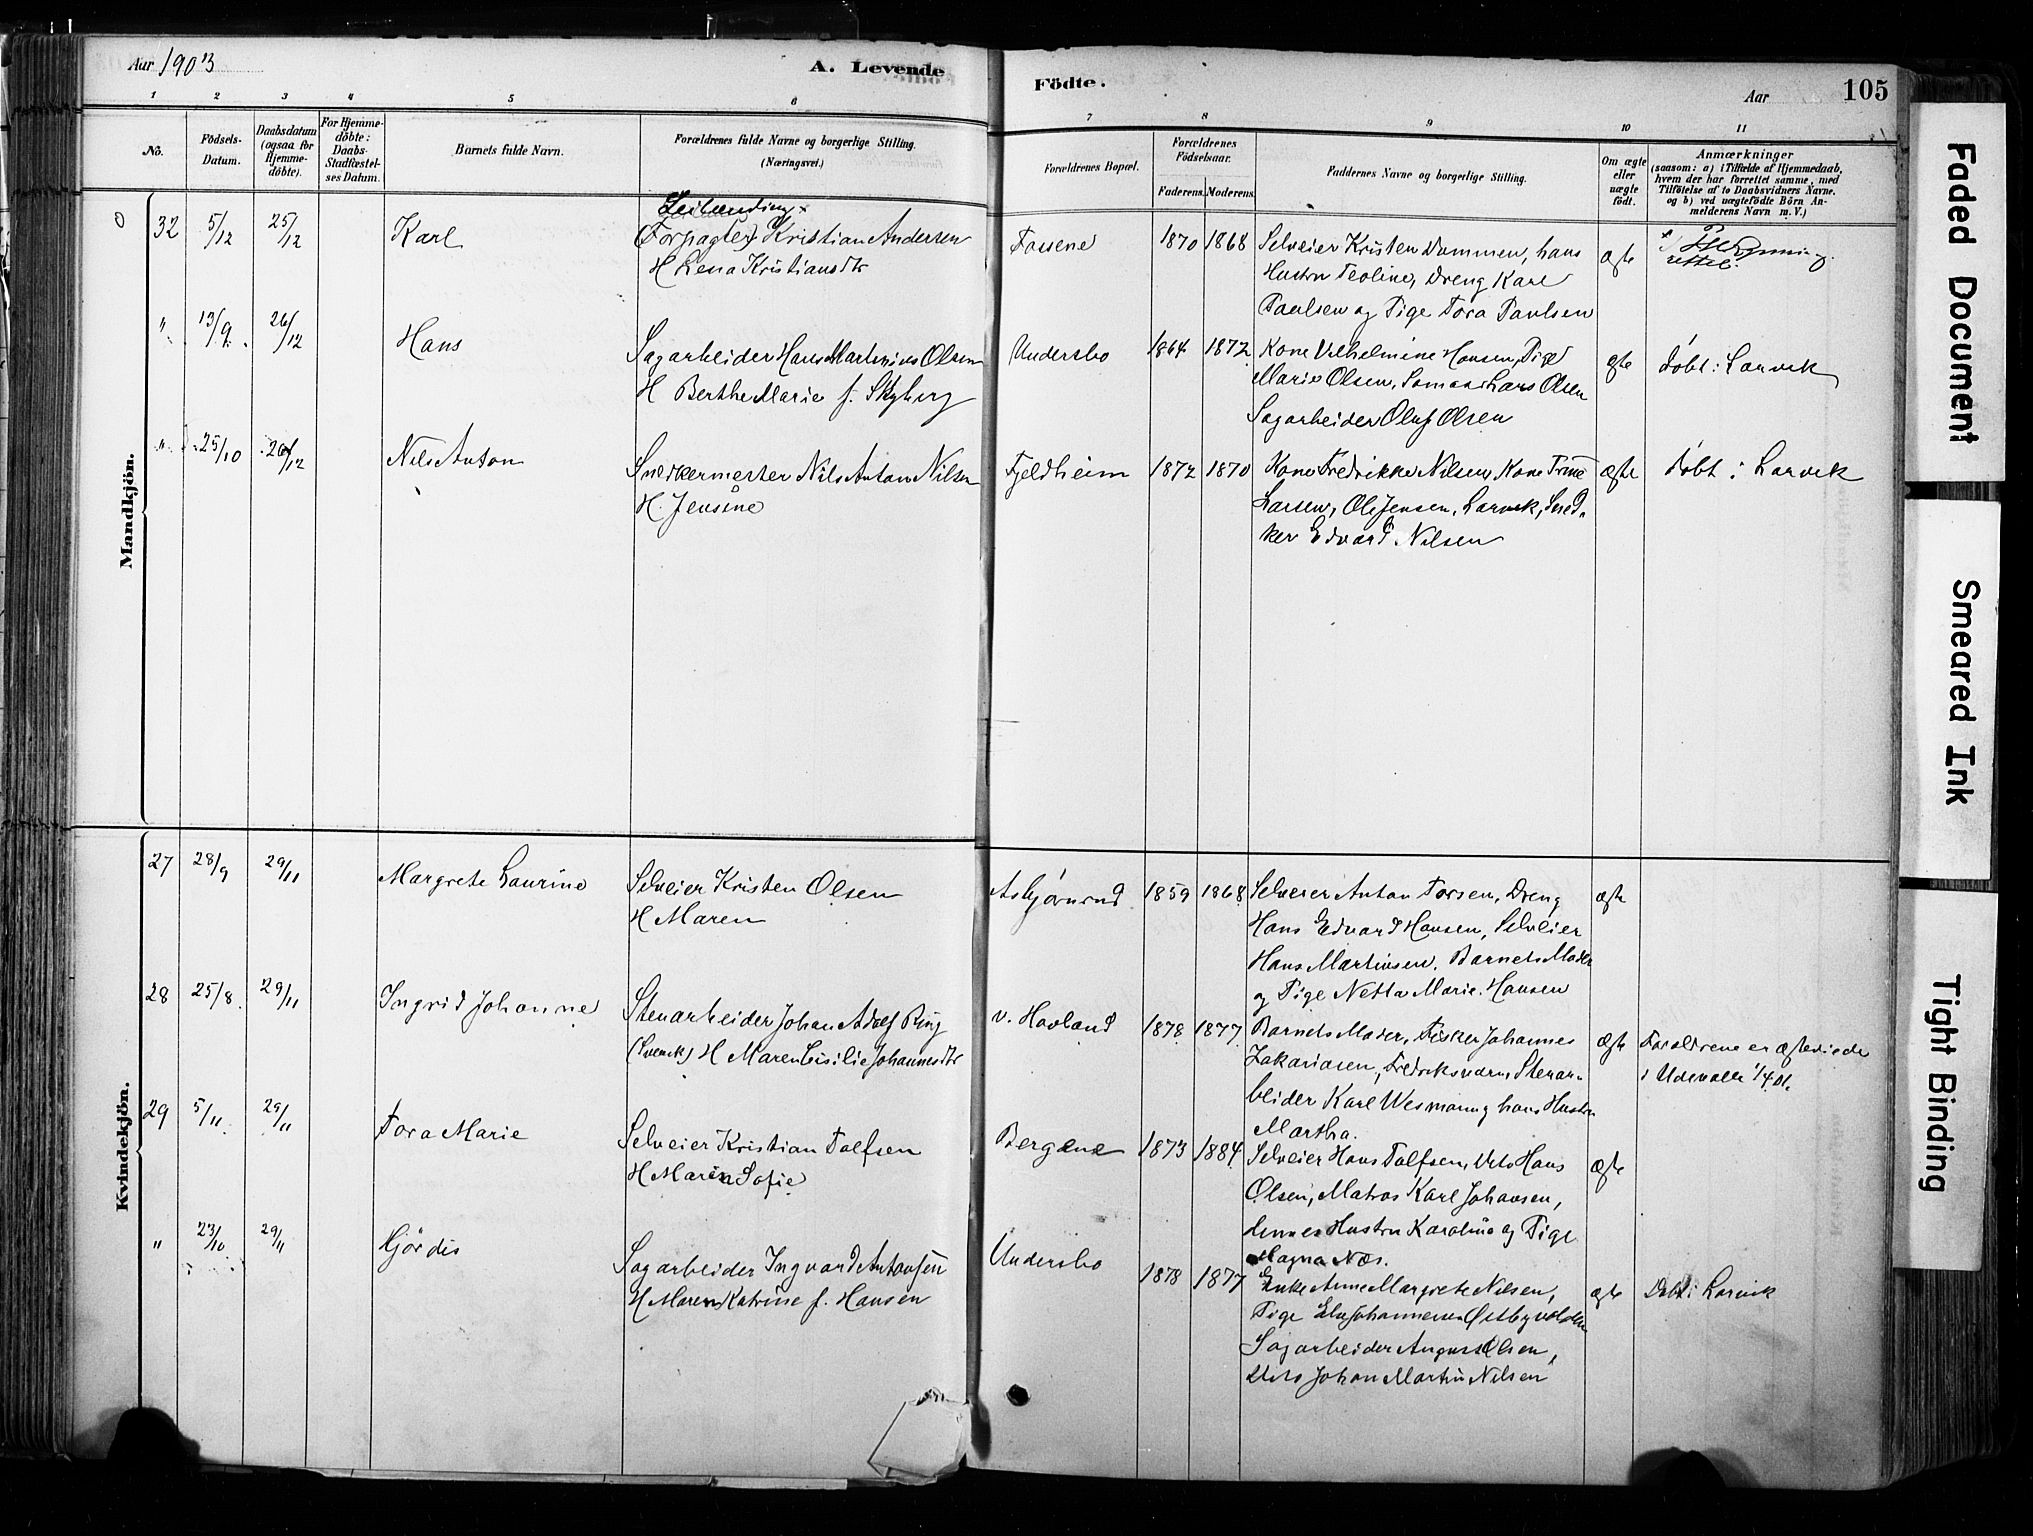 Aar 1903
A. Levende
Födte.
Aar
105
1 2 3 4 5 6 7 8 9 10 11
No.
Födsels-
Datum.
Daabsdatum
(ogsaa for
Hjemme-
döbte).
For Hjemme-
döbte:
Daabs-
Stadfæstel-
ses Datum.
Barnets fulde Navn.
Forældrenes fulde Navne og borgerlige Stilling.
(Næringsvei.)
Forældrenes Bopæl.
Forældrenes
Födselsaar.
Faderens. Moderens.
Faddernes Navne og borgerlige Stilling.
Om ægte
eller
uægte
födt.
Anmærkninger
(saasom: a) i Tilfælde af Hjemmedaab,
hvem der har forrettet samme, med
Tilföielse af to Daabsvidners Navne,
og b) ved uægtefödte Börn An-
melderens Navn m. V.)
Mandkjön.
0
32 5/12 25/12 Karl
Leilænding x
(Forpagter) Kristian Andersen
H Lena Kristiansdtr
Fossene 1870 1868
Selveier Kristen Dammen, hans
Hustru Teoline, Dreng Karl
Paulsen og Pige Tora Paulsen
ægte
rettel.
" 13/9. 26/12 Hans
Sagarbeider Hans Martinius Olsen
H Berthe Marie f. Skyberg
Undersbo 1864 1872
Kone Vilhelmine Hansen, Pige
Marie Olsen, Sømand Lars Olsen
Sagarbeider Oluf Olsen
ægte
døbt i Larvik
" 25/10 26/12 Nils Anton
Snedkermester Nils Anton Nilsen
H. Jensine
Fjeldheim 1872 1870
Kone Fredrikke Nilsen, Kone Trine
Larsen, Ole Jensen, Larvik, Sned-
ker Edvard Nilsen
ægte
døbt i Larvik
Kvindekjön.
27 28/9 29/11 Margrete Laurine
Selveier Kristen Olsen
H Maren
Asbjørnrud 1859 1868
Selveier Anton Torsen, Dreng
Hans Edvard Hansen, Selveier
Hans Martinsen. Barnets Moder
og Pige Netta Marie Hansen
ægte
28 25/8. 29/11 Ingrid Johanne
Stenarbeider Johan Adolf Ring
(Svensk) H Maren Cisilie Johannesdtr
v. Hovland 1878 1877
Barnets Moder, Fisker Johannes
Zakariasen, Fredriksværn, Stenar-
beider Karl Wesmann og hans Hustru
Martha.
ægte
Forældrene er ægteviede
i Udevalle 1/4 01.
29 5/11. 29/11 Tora Marie
Selveier Kristian Tolfsen
H Maren Sofie
Bergene 1873 1884
Selveier Hans Tolfsen, Uris Hans
Olsen, Matros Karl Johansen,
dennes Hustru Karoline og Pige
Magna Næs.
ægte
" 23/10. 29/11 Hjørdis
Sagarbeider Ingvard Antonsen
H Maren Katrine f. Hansen
Undersbo 1878 1877
Enke Anne Margrete Nilsen,
Pige Johannessen Østbyvolden
Sagarbeider August Olsen,
Uris Johan Martin Nilsen
ægte
Døbt i Larvik
Faded Document
Smeared Ink
Tight Binding